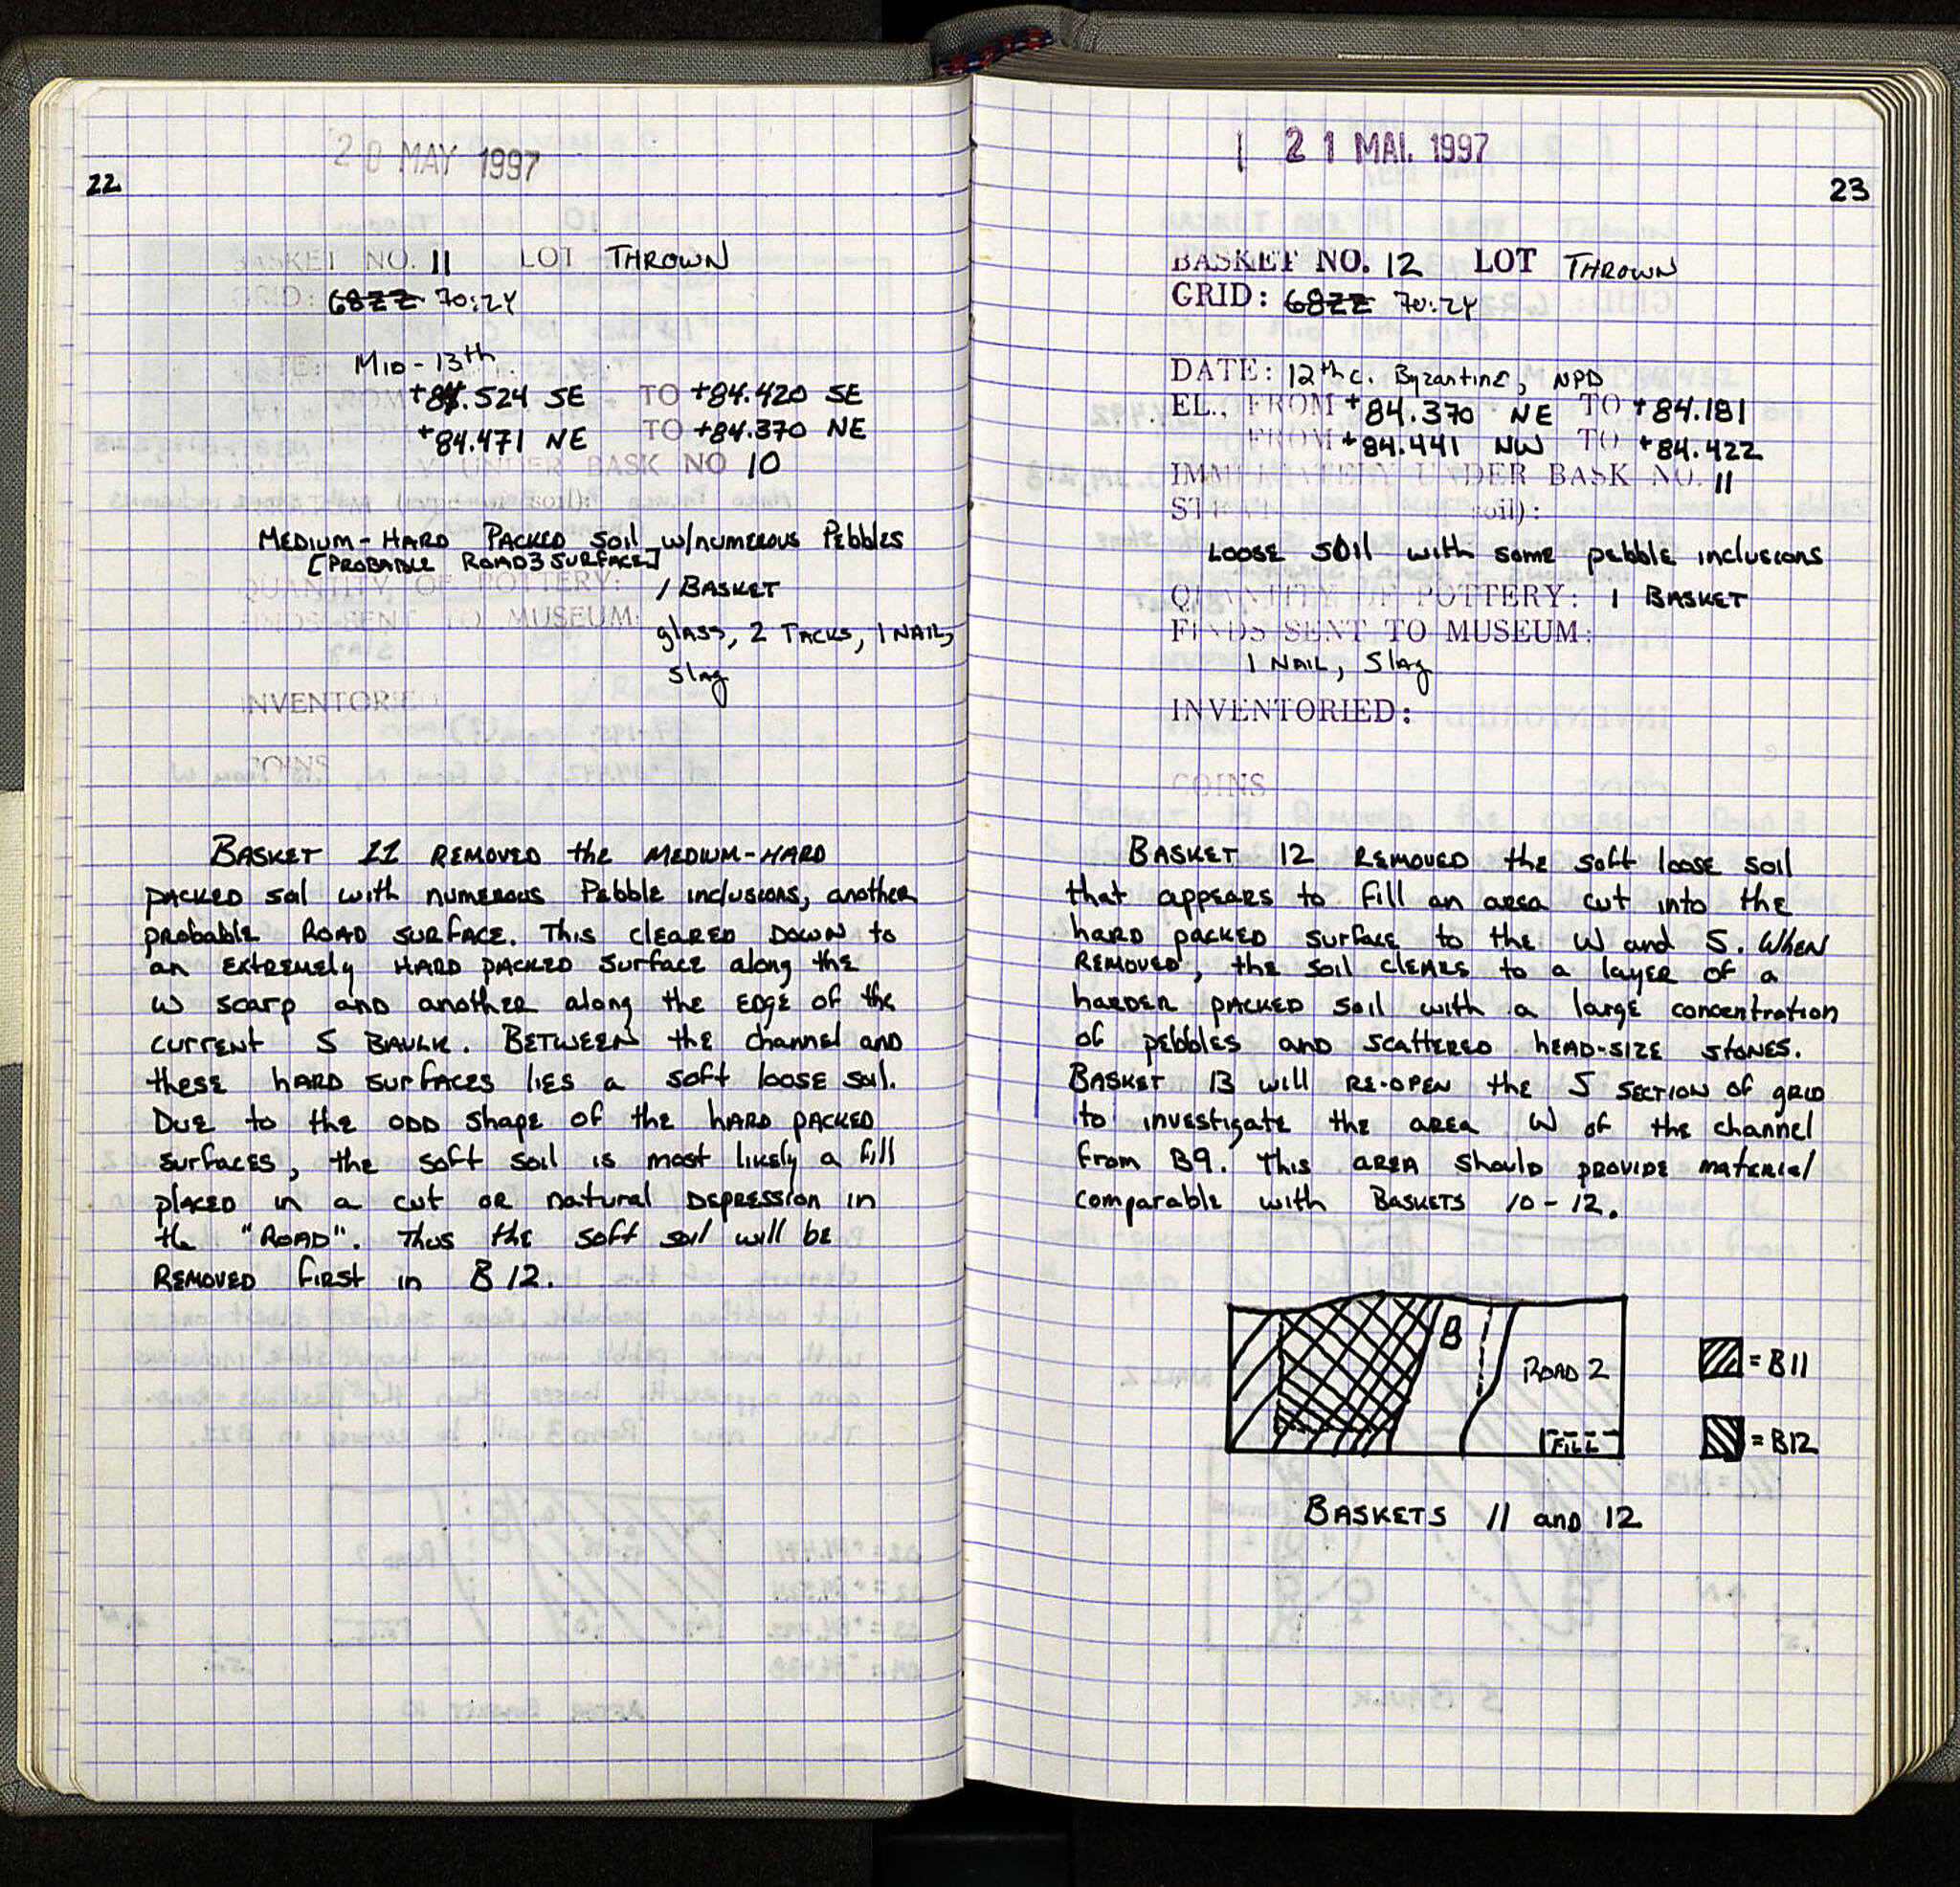 20 MAY 1997
22
BASKET NO. 11 LOT THROWN
GRID: 68ZZ 70:ZY
MID-13th
+84.524 SE TO +84.420 SE
+84.471 NE TO +84.370 NE
UNDER BASK NO 10
MEDIUM-HARD PACKED SOIL w/NUMEROUS PEBBLES
[PROBABLE ROAD 3 SURFACE]
QUANTITY OF POTTERY: 1 BASKET
FINDS SENT TO MUSEUM: glass, 2 TACKS, 1 NAIL,
slag
INVENTORIED
COINS
BASKET 11 REMOVED the MEDIUM-HARD
PACKED soil with NUMEROUS Pebble inclusions, another
probable ROAD SURFACE. This CLEARED DOWN to
an EXTREMELY HARD PACKED surface along the
W scarp and another along the EDGE of the
current S BAULK. BETWEEN the channel and
these HARD surfaces lies a soft loose soil.
Due to the odd shape of the HARD PACKED
surfaces, the soft soil is most likely a fill
placed in a cut or natural DEPRESSION in
the "ROAD". Thus the soft soil will be
REMOVED first in B 12.
21 MAI. 1997
23
BASKET NO. 12 LOT THROWN
GRID: 68ZZ 70:ZY
DATE: 12th c. Byzantine, NPD
EL., FROM +84.370 NE TO +84.181
FROM +84.441 NW TO +84.422
IMMEDIATELY UNDER BASK NO. 11
soil):
LOOSE SOIL with some pebble inclusions
QUANTITY OF POTTERY: 1 BASKET
FINDS SENT TO MUSEUM:
1 NAIL, Slag
INVENTORIED:
COINS
BASKET 12 REMOVED the soft loose soil
that appears to fill an area cut into the
hard packed surface to the W and S. When
REMOVED, the soil clears to a layer of a
harder packed soil with a large concentration
of pebbles and scattered head-size stones.
BASKET 13 will RE-OPEN the S section of grid
to investigate the area W of the channel
from B9. This area should provide material
comparable with Baskets 10-12.
B
ROAD 2
FILL
= B11
= B12
BASKETS 11 and 12